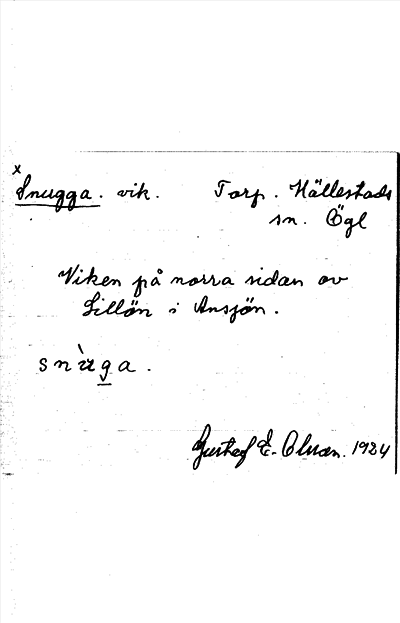 x
Snugga. vik. Torp. Hällestads
sn. Ögl
Viken på norra sidan av
Lillön i Ansjön.
snùga.
Gustaf E. Olson. 1924